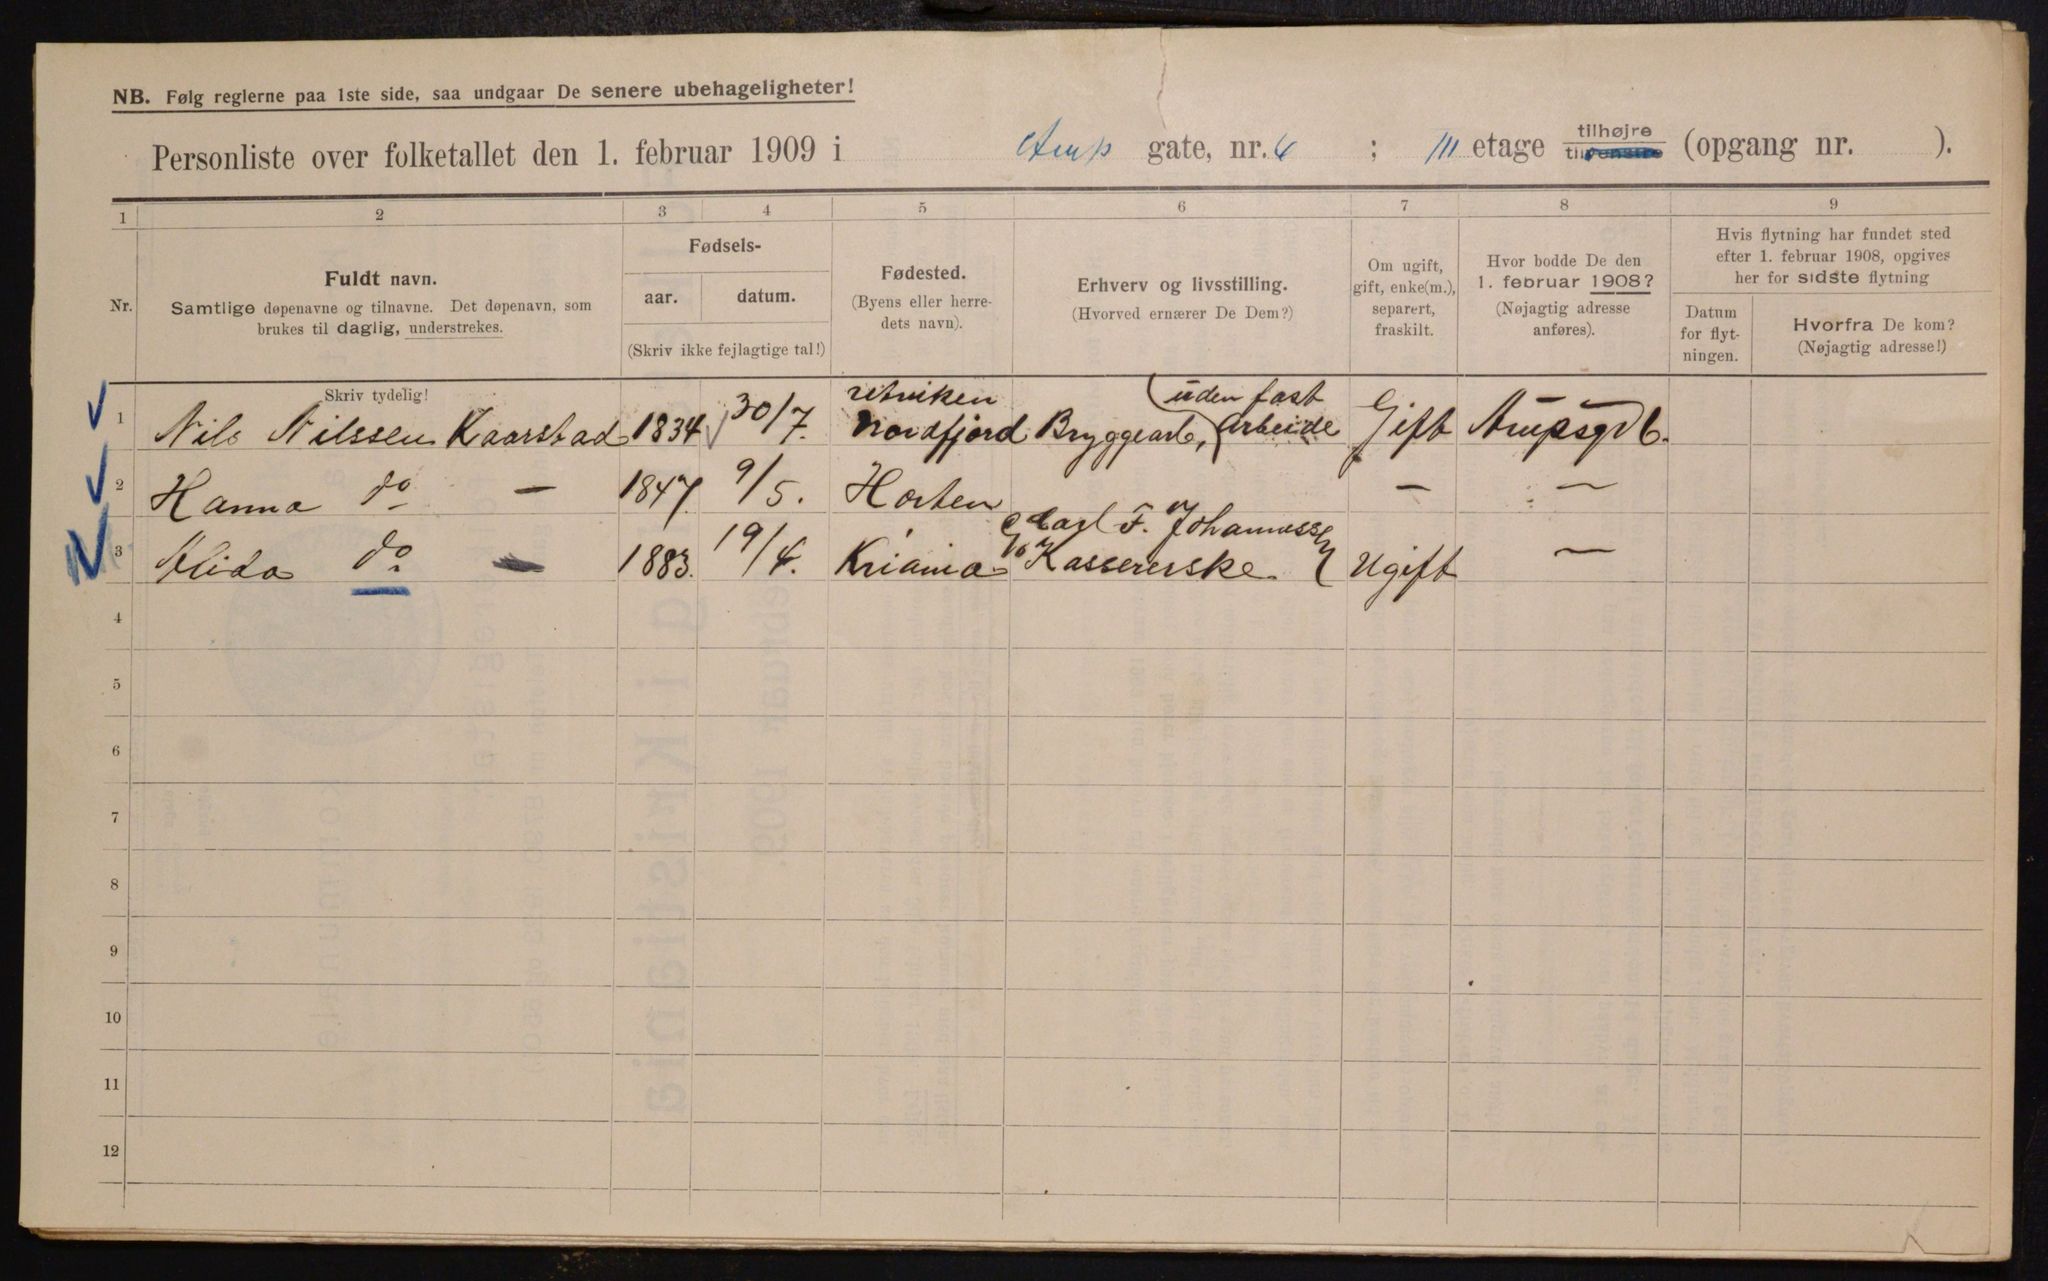 NB. Følg reglerne paa 1ste side, saa undgaar De senere ubehageligheter!
Personliste over folketallet den 1. februar 1909 i Arups gate, nr. 6 ; III etage tilhøjre tilvenstre (opgang nr. ).
1 2 3 4 5 6 7 8 9
Nr.
Fuldt navn.
Samtlige døpenavne og tilnavne. Det døpenavn, som
brukes til daglig, understrekes.
Fødsels-
aar. datum.
(Skriv ikke fejlagtige tal!)
Fødested.
(Byens eller herre-
dets navn).
Erhverv og livsstilling.
(Hvorved ernærer De Dem?)
Om ugift,
gift, enke(m.),
separert,
fraskilt.
Hvor bodde De den
1. februar 1908?
(Nøjagtig adresse
anføres).
Hvis flytning har fundet sted
efter 1. februar 1908, opgives
her for sidste flytning
Datum
for flyt-
ningen.
Hvorfra De kom?
(Nøjagtig adresse!)
Skriv tydelig!
utviken (uden fast
1 Nils Nilssen Kaarstad 1834 30/7. Nordfjord Bryggearb, Arbeide Gift Arupsgd 6.
2 Hanna do — 1847 9/5. Horten — —
Carl F. Johannessen
3 Alida do — 1883. 19/4. Kriania Kassererske Ugift —
4
5
6
7
8
9
10
11
12